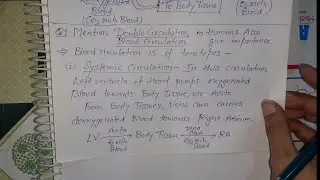 Deoxygenated
Blood
(CO₂ rich Blood)
To Body Tissue
rich Blood)
Q) Mention Double Circulation in Humans. Also
Blood Circulation give importance.
→ Blood circulation is of two types-
(i) Systemic Circulation- In this circulation
Left ventricle of Blood pumps oxygenated
Blood towards Body Tissue, via Aorta
From Body Tissues, Vena Cava carries
deoxygenated Blood towards Right Atrium.
LV Aorta → Body Tissue Vena Cava → RA
O₂ rich Blood CO₂ rich Blood